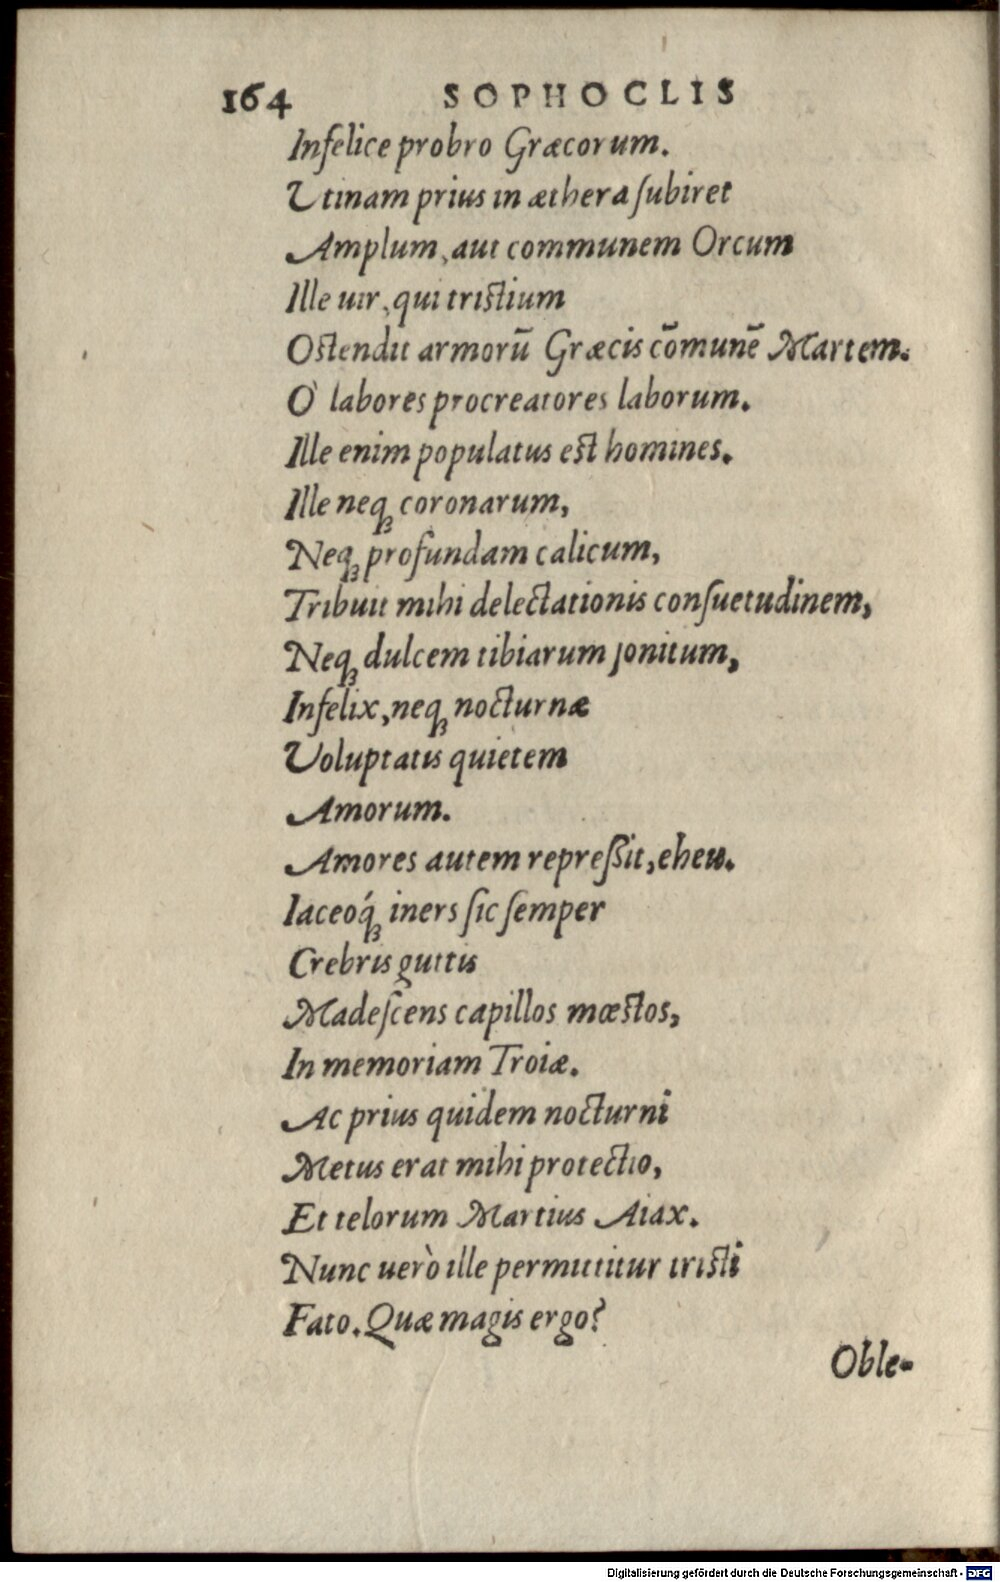 164 SOPHOCLIS
Infelice probro Græcorum.
Utinam prius in æthera ſubiret
Amplum, aut communem Orcum
Ille uir, qui triſtium
Oſtendit armorū Græcis cōmunē Martem.
O' labores procreatores laborum.
Ille enim populatus eſt homines.
Ille neqꝫ coronarum,
Neqꝫ profundam calicum,
Tribuit mihi delectationis conſuetudinem,
Neqꝫ dulcem tibiarum ſonitum,
Infelix, neqꝫ nocturnæ
Voluptatis quietem
Amorum.
Amores autem repreſſit, eheu.
Iaceoq́ꝫ iners ſic ſemper
Crebris guttis
Madeſcens capillos mœſtos,
In memoriam Troiæ.
Ac prius quidem nocturni
Metus erat mihi protectio,
Et telorum Martius Aiax.
Nunc uerò ille permittitur triſti
Fato. Quæ magis ergo?
Oble-
Digitalisierung gefördert durch die Deutsche Forschungsgemeinschaft - DFG